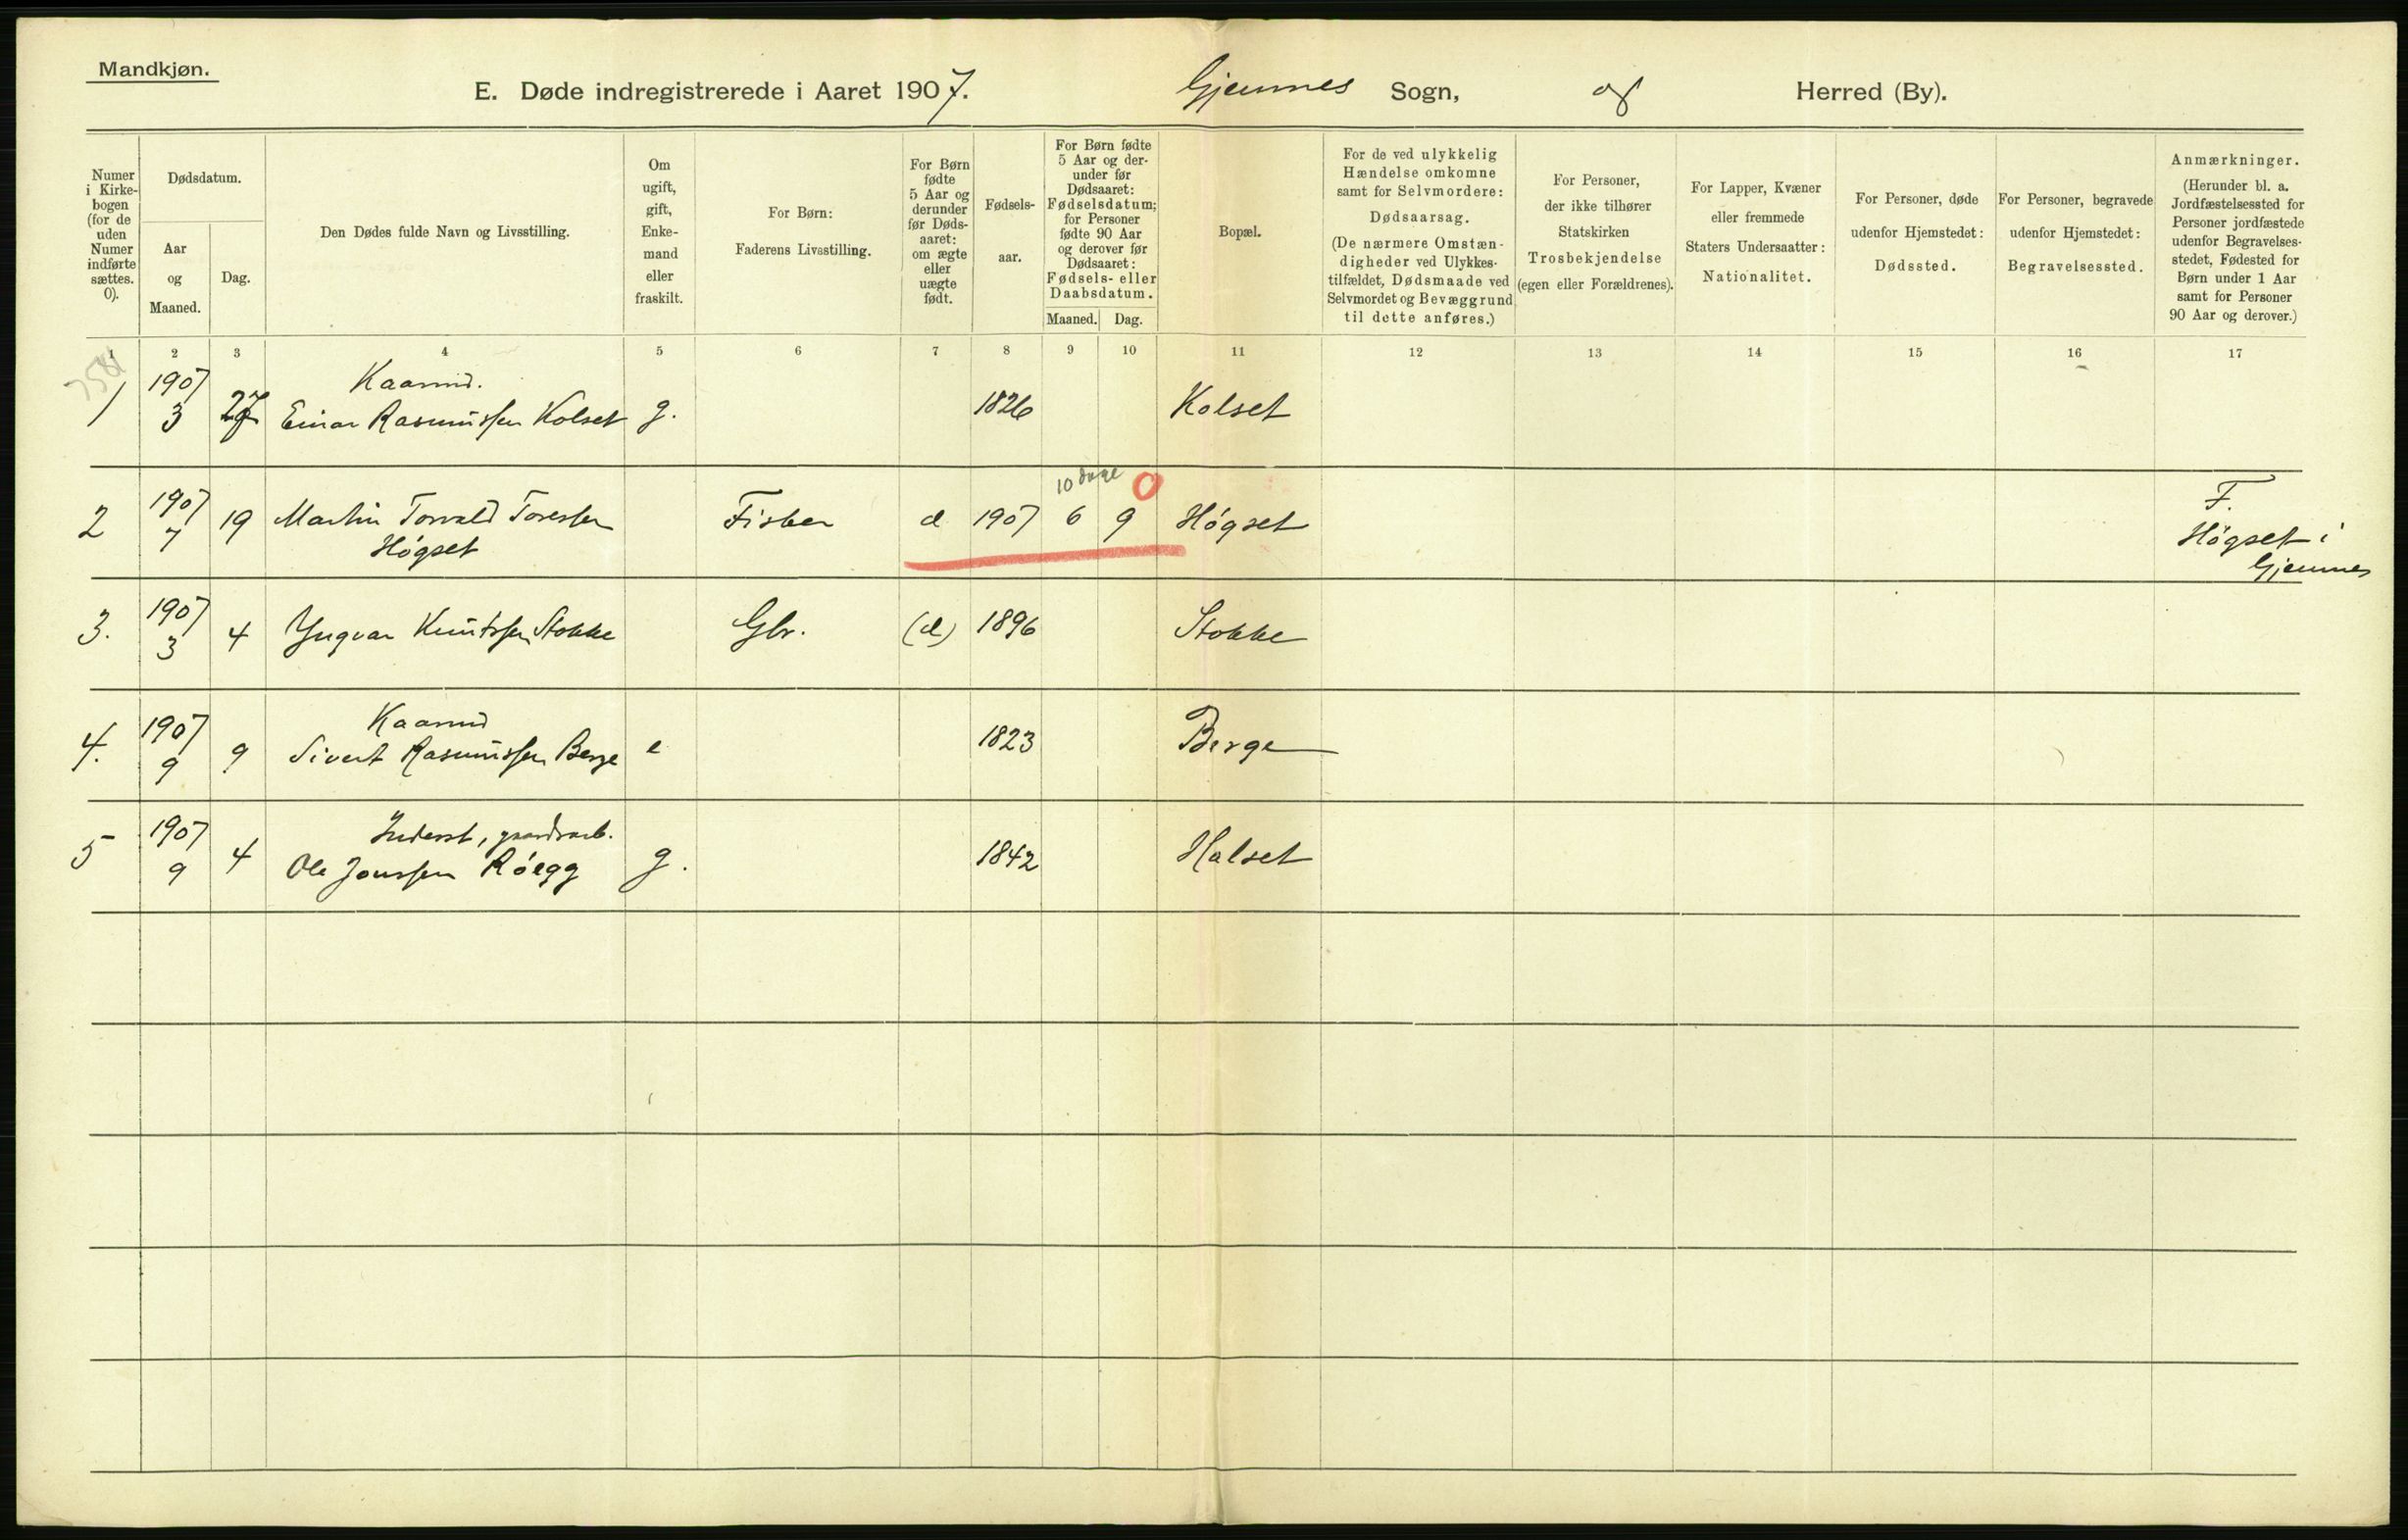 Mandkjøn.
E. Døde indregistrerede i Aaret 1907. Gjemnes Sogn, og Herred (By).
Numer i Kirkebogen (for de uden Numer indførte sættes. 0).
Dødsdatum.
Aar og Maaned.
Dag.
Den Dødes fulde Navn og Livsstilling.
Om ugift, gift, Enkemand eller fraskilt.
For Børn: Faderens Livsstilling.
For Børn fødte 5 Aar og derunder før Dødsaaret: om ægte eller uægte født.
Fødselsaar.
For Børn fødte 5 Aar og derunder før Dødsaaret: Fødselsdatum; for Personer fødte 90 Aar og derover før Dødsaaret: Fødsels- eller Daabsdatum.
Maaned. Dag.
Bopæl.
For de ved ulykkelig Hændelse omkomne samt for Selvmordere: Dødsaarsag. (De nærmere Omstændigheder ved Ulykkestilfældet, Dødsmaade ved Selvmordet og Bevæggrund til dette anføres.)
For Personer, der ikke tilhører Statskirken Trosbekjendelse (egen eller Forældrenes).
For Lapper, Kvæner eller fremmede Staters Undersaatter: Nationalitet.
For Personer, døde udenfor Hjemstedet: Dødssted.
For Personer, begravede udenfor Hjemstedet: Begravelsessted.
Anmærkninger. (Herunder bl. a. Jordfæstelsessted for Personer jordfæstede udenfor Begravelsesstedet, Fødested for Børn under 1 Aar samt for Personer 90 Aar og derover.)
1 2 3 4 5 6 7 8 9 10 11 12 13 14 15 16 17
1907 Kaarmd.
1 3 27 Einar Rasmussen Kolset g. 1826 Kolset
10 dage 0
1907 F.
2 7 19 Martin Torvald Toressen Fisker d 1907 6 9 Høgset Høgset i
Høgset Gjemnes
1907
3. 3 4 Yngvar Knutssen Stokke Gbr. (d) 1896 Stokke
1907 Kaarmd
4. 9 9 Sivert Rasmussen Berge e 1823 Berge
1907 Inderst, gaardsarb.
5 9 4 Ole Jonssen Røegg g. 1842 Halset